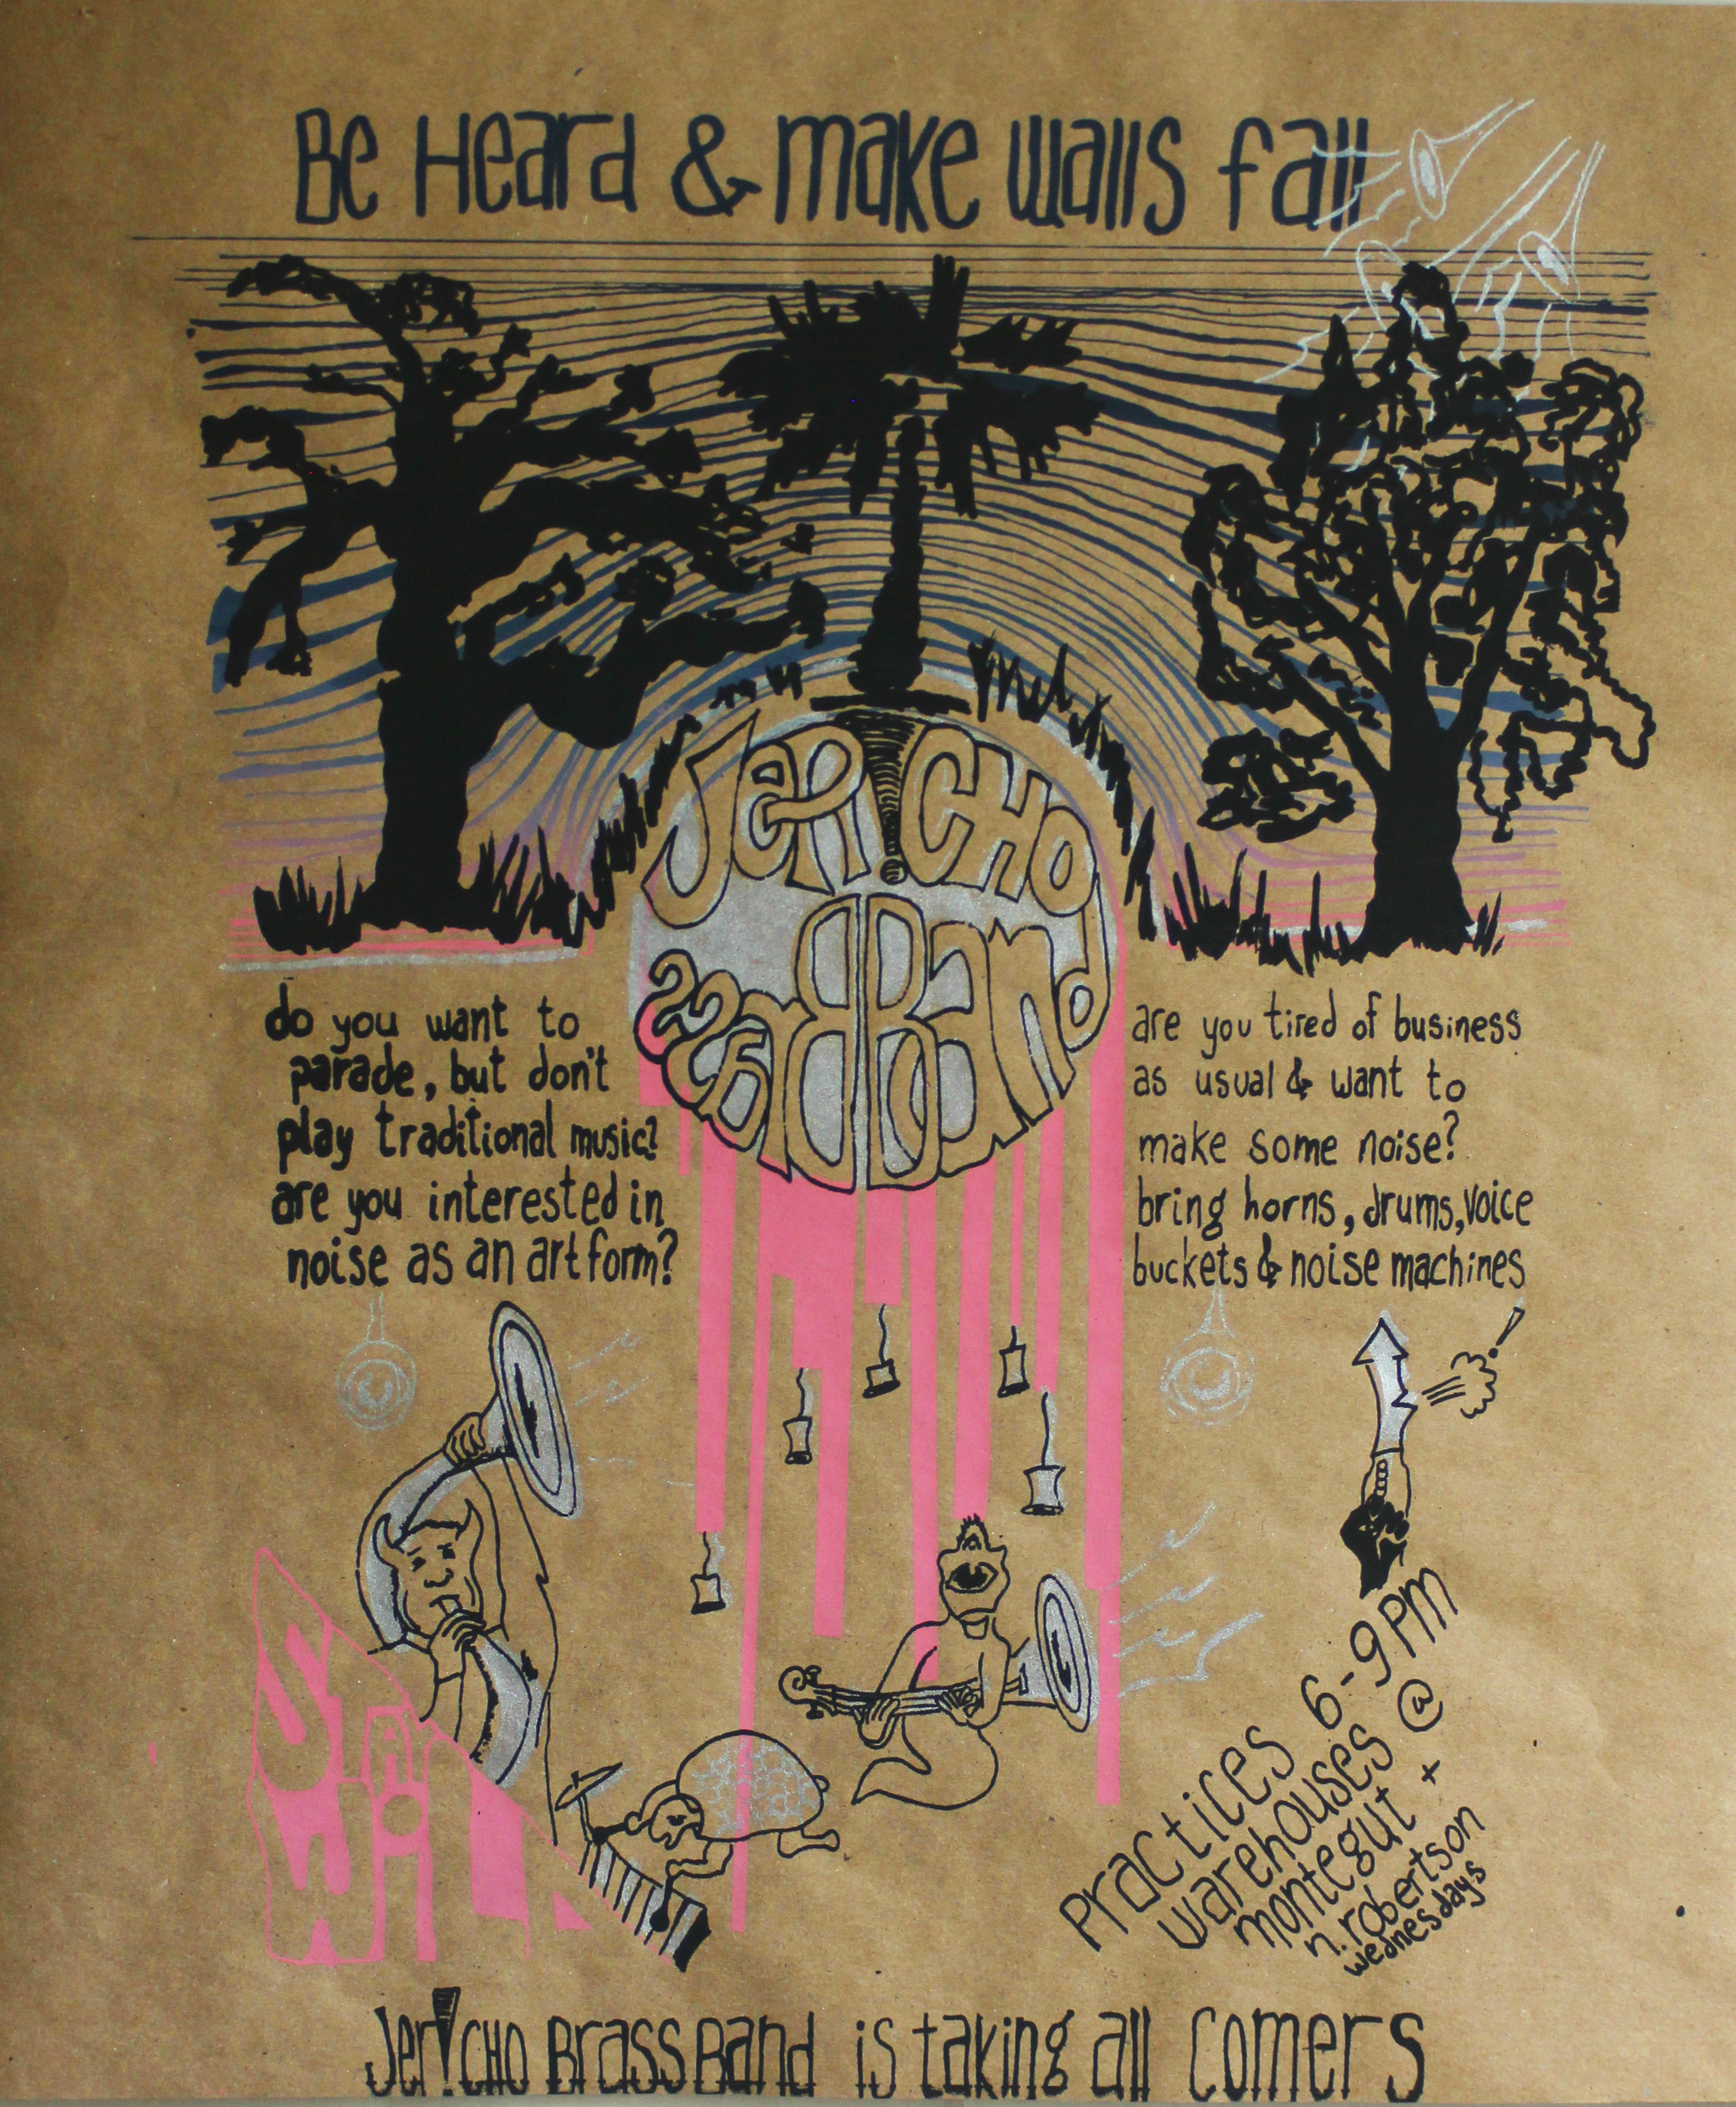 Be Heard & make walls fall
Jer!CHO
Brass Band
do you want to
parade, but don't
play traditional music?
are you interested in
noise as an art form?
are you tired of business
as usual & want to
make some noise?
bring horns, drums, voice
buckets & noise machines
Stay
Wild
Practices 6-9 PM
warehouses @
montegut +
n. robertson
wednesdays
Jer!CHO Brass Band is taking all comers